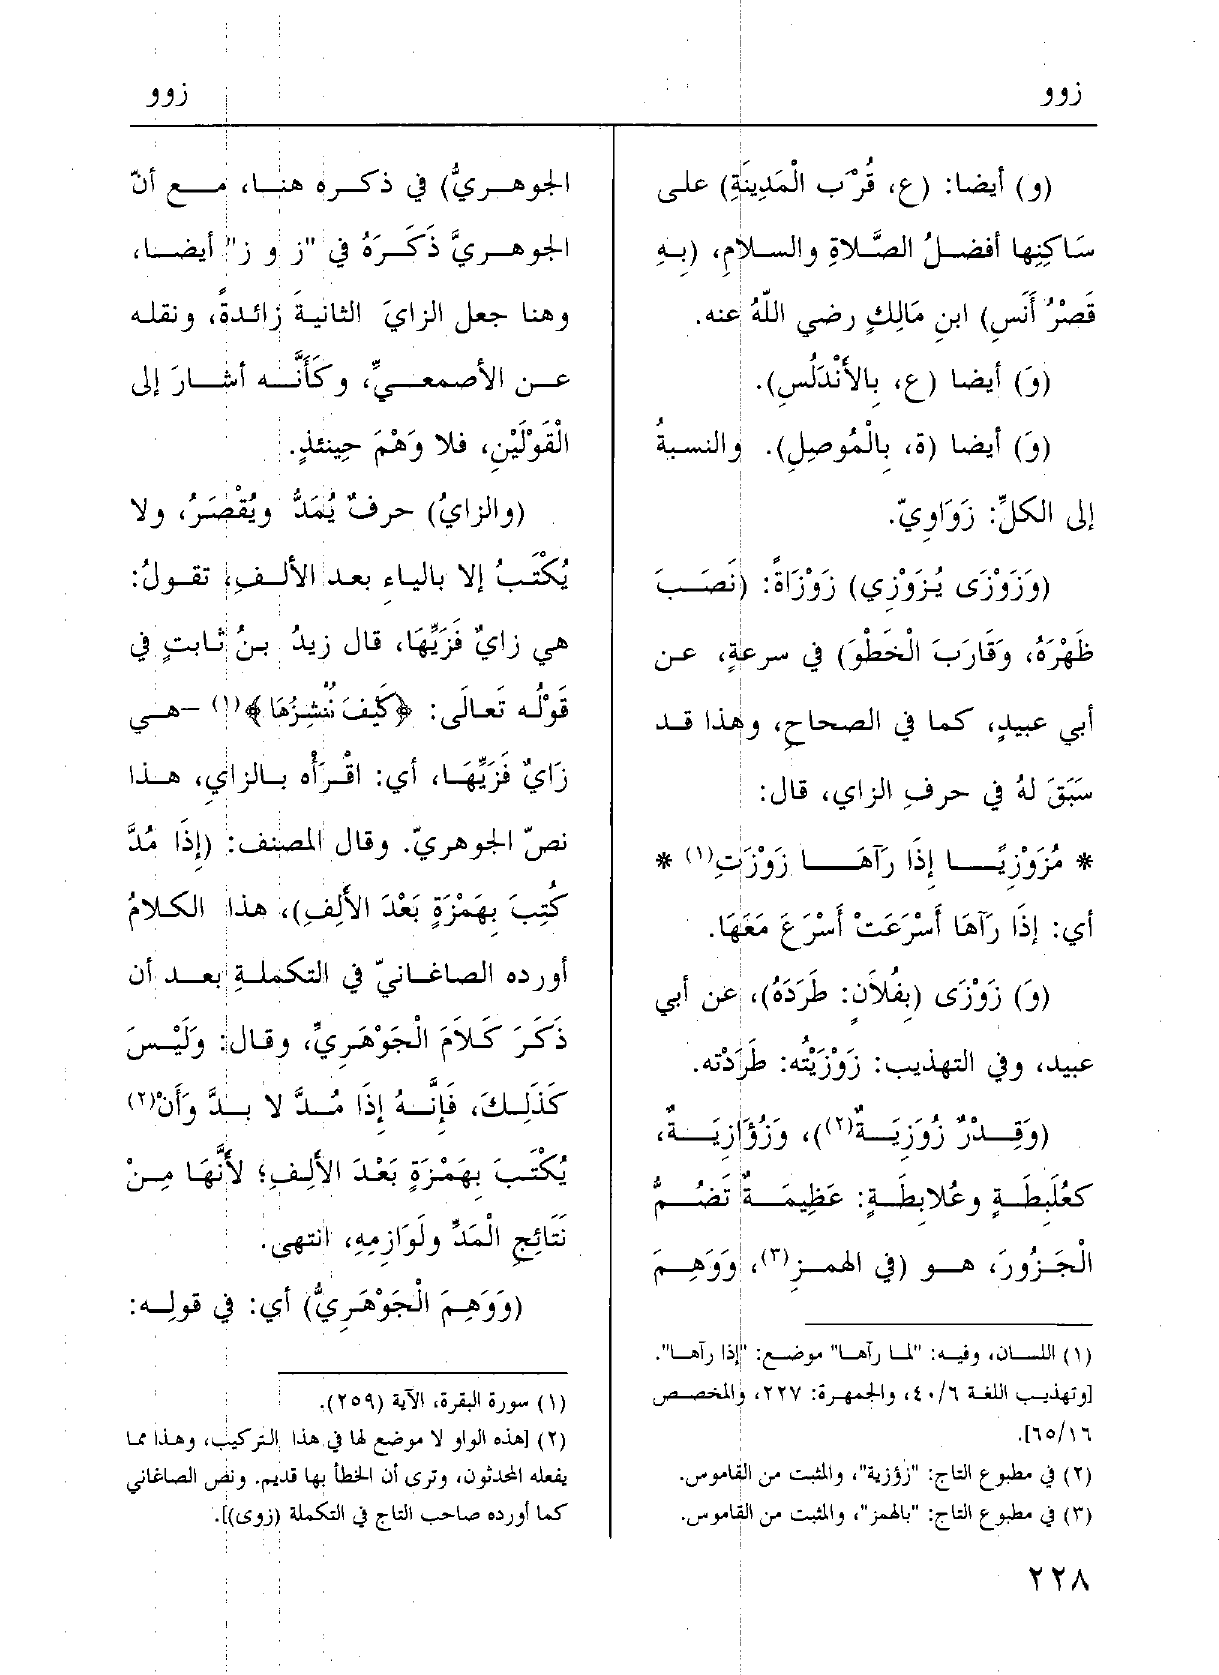 زوو
زوو
(و) أيضا: (ع، قُرْبَ الْمَدِينَةِ) على
سَاكِنِها أفضلُ الصَّلاةِ والسلامِ، (بِهِ
قَصْرُ أَنَسِ) ابنِ مَالِكٍ رضي اللّهُ عنه.
(وَ) أيضا (ع، بِالأَنْدَلُسِ).
(وَ) أيضا (ة، بِالْمُوصِلِ). والنسبةُ
إلى الكلِّ: زَوَاوِيّ.
(وَزَوْزَى يُزَوْزِي) زَوْزَاةً: (نَصَبَ
ظَهْرَهُ، وَقَارَبَ الْخَطْوَ) في سرعةٍ، عن
أبي عبيدٍ، كما في الصحاحِ، وهذا قد
سَبَقَ لهُ في حرفِ الزاي، قال:
* مُزَوْزِيًا إذَا رَآهَا زَوْزَتِ(١) *
أي: إذَا رَآهَا أَسْرَعَتْ أَسْرَعَ مَعَهَا.
(وَ) زَوْزَى (بِفُلاَنٍ: طَرَدَهُ)، عن أبي
عبيد، وفي التهذيب: زَوْزَيْتُه: طَرَدْته.
(وَقِدْرٌ زُوَزِيَةٌ(٢))، وَزُؤَازِيَةٌ،
كعُلَبِطَةٍ وعُلابطَةٍ: عَظِيمَةٌ تَضُمُّ
الْجَزُورَ، هو (في الهمزِ(٣)، وَوَهِمَ
(١) اللسان، وفيه: "لما رآها" موضع: "إذا رآها".
[وتهذيب اللغة ٤٠/٦، والجمهرة: ٢٢٧، والمخصص
٦٥/١٦].
(٢) في مطبوع التاج: "زؤزية"، والمثبت من القاموس.
(٣) في مطبوع التاج: "بالهمز"، والمثبت من القاموس.
الجوهريُّ) في ذكره هنا، مع أنّ
الجوهريَّ ذَكَرَهُ في "ز و ز" أيضا،
وهنا جعل الزايَ الثانيةَ زائدةً، ونقله
عن الأصمعيِّ، وكَأَنَّه أشارَ إلى
الْقَوْلَيْنِ، فلا وَهْمَ حِينئذٍ.
(والزايُ) حرفٌ يُمَدُّ ويُقْصَرُ، ولا
يُكْتَبُ إلا بالياء بعد الألفِ، تقولُ:
هي زايٌ فَزَيِّهَا، قال زيدُ بنُ ثابتٍ في
قَوْلُه تَعالَى: ﴿كَيْفَ نُنْشِزُهَا﴾(١) –هي
زَايٌ فَزَيِّهَا، أي: اقْرَأْه بالزاي، هذا
نصّ الجوهريّ. وقال المصنف: (إذَا مُدَّ
كُتِبَ بِهَمْزَةٍ بَعْدَ الألِفِ)، هذا الكلامُ
أورده الصاغانيّ في التكملةِ بعد أن
ذَكَرَ كَلاَمَ الْجَوْهَرِيِّ، وقال: وَلَيْسَ
كَذَلِكَ، فَإنَّهُ إذَا مُدَّ لا بدَّ وَأَنْ(٢)
يُكْتَبَ بِهَمْزَةٍ بَعْدَ الألِفِ؛ لأنَّهَا مِنْ
نَتَائِجِ الْمَدِّ ولَوَازِمِهِ، انتهى.
(وَوَهِمَ الْجَوْهَرِيُّ) أي: في قولِه:
(١) سورة البقرة، الآية (٢٥٩).
(٢) [هذه الواو لا موضع لها في هذا التركيب، وهذا مما
يفعله المحدثون، وترى أن الخطأ بها قديم. ونص الصاغاني
كما أورده صاحب التاج في التكملة (زوى)].
٢٢٨